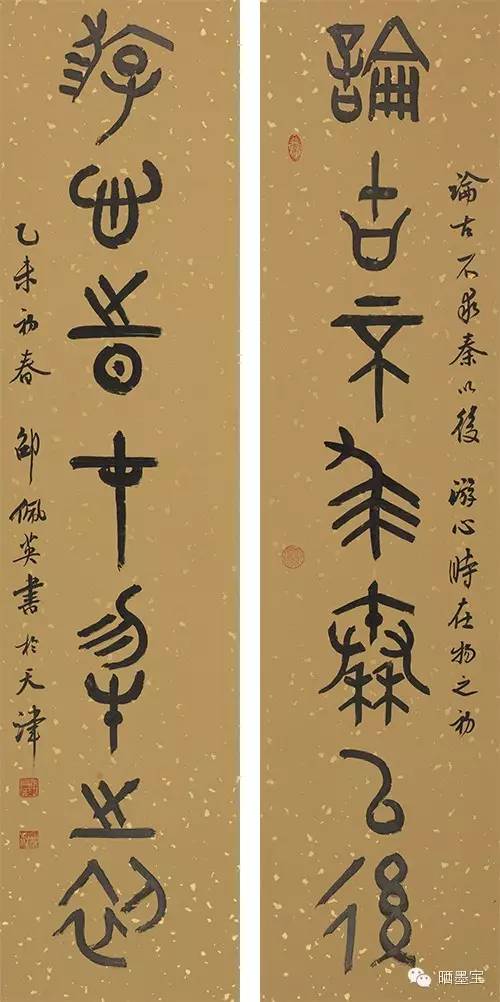 論古不求秦以後
論古不求秦以後 游心時在物之初
游心時在物之初
乙未初春 邵佩英書於天津
晒墨宝